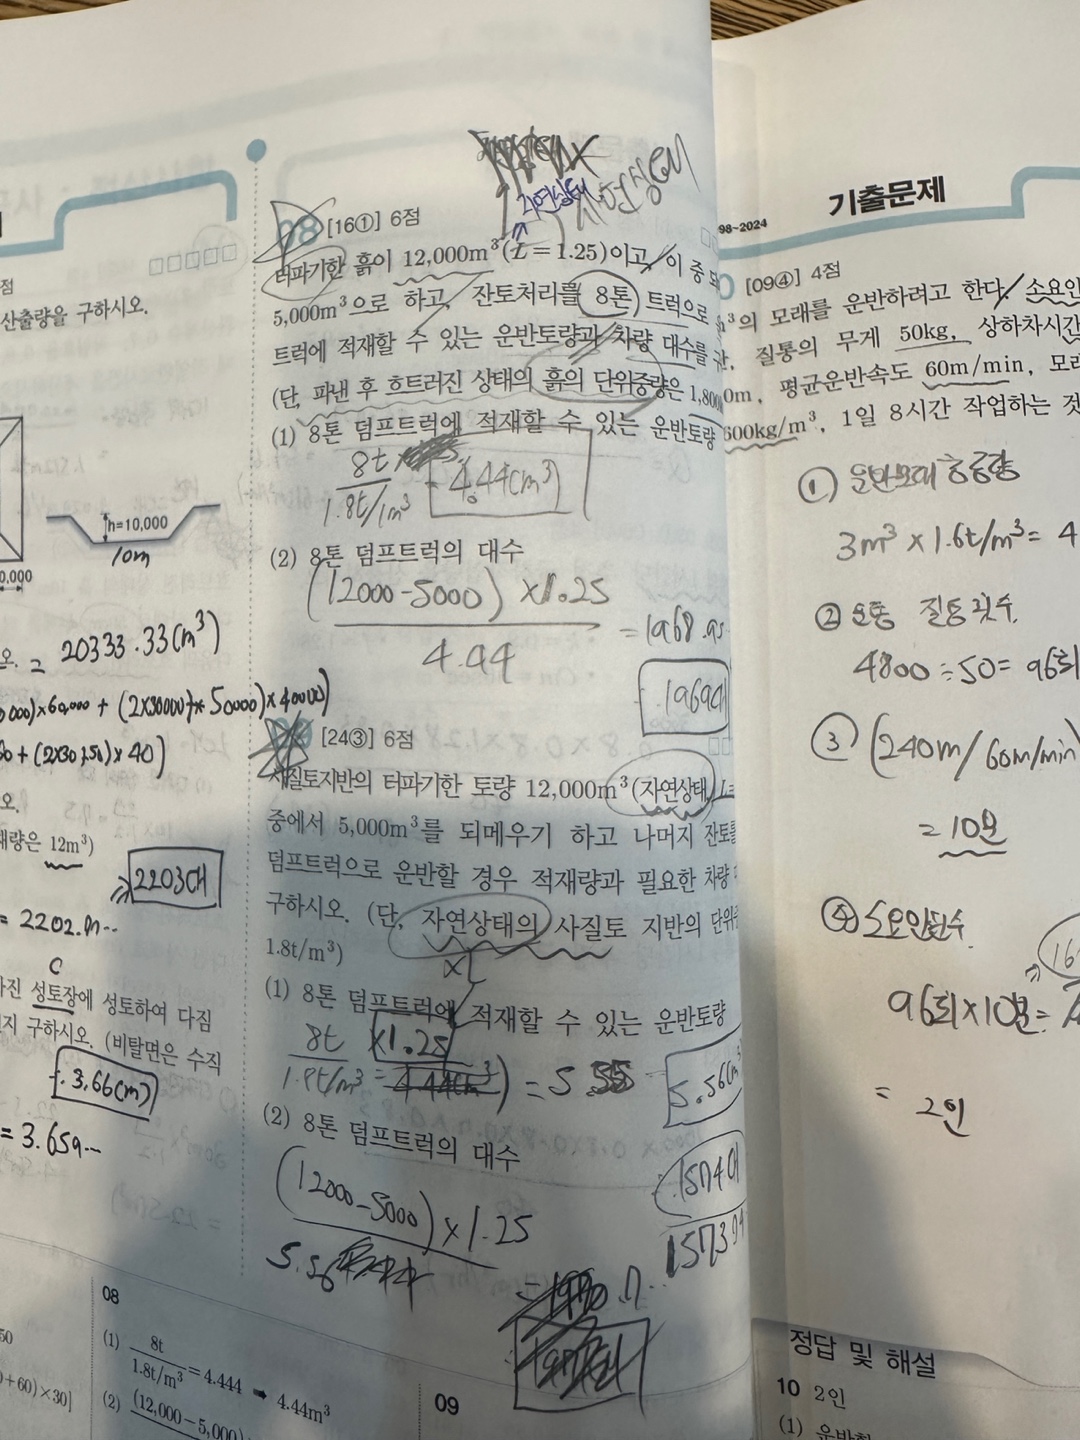 점
산출량을 구하시오.
h=10,000
10m
0,000
오. = 20333.33(m³)
대량은 12m³)
2203대
= 2202.
C
가진 성토장에 성토하여 다짐
지 구하시오. (비탈면은 수직
∴3.66(m)
= 3.659...
자연상태
자연상태
08 [16①] 6점
터파기한 흙이 12,000m³(L=1.25)이고, 이 중 되
5,000m³으로 하고, 잔토처리를 8톤 트럭으로
트럭에 적재할 수 있는 운반토량과 차량 대수를
(단, 파낸 후 흐트러진 상태의 흙의 단위중량은 1,800
(1) 8톤 덤프트럭에 적재할 수 있는 운반토량
8t
1.8t/1m³
= 4.44(m³)
(2) 8톤 덤프트럭의 대수
(12000-5000) ×1.25
4.44
= 1968.
∴1969대
[24③] 6점
사질토지반의 터파기한 토량 12,000m³(자연상태, L=
중에서 5,000m³를 되메우기 하고 나머지 잔토를
덤프트럭으로 운반할 경우 적재량과 필요한 차량
구하시오. (단, 자연상태의 사질토 지반의 단위중
1.8t/m³)
×L
(1) 8톤 덤프트럭에 적재할 수 있는 운반토량
8t ×1.25
1.8t/m³
= 5.55
5.56(m³)
(2) 8톤 덤프트럭의 대수
(12000-5000)×1.25
5.56
∴1574대
1573.
08
(1) 8t
1.8t/m³ =4.444 ➡ 4.44m³
(2) (12,000-5,000)
09
98~2024
기출문제
[09④] 4점
m³의 모래를 운반하려고 한다. 소요인
간, 질통의 무게 50kg, 상하차시간
0m, 평균운반속도 60m/min, 모래
600kg/m³, 1일 8시간 작업하는 것
① 운반모래 중량
3m³×1.6t/m³= 4
②
4800÷50= 96회
③ (240m/60m/min)
= 10분
④ 소요인원수
96회×10분=
= 2인
정답 및 해설
10 2인
(1) 운반할